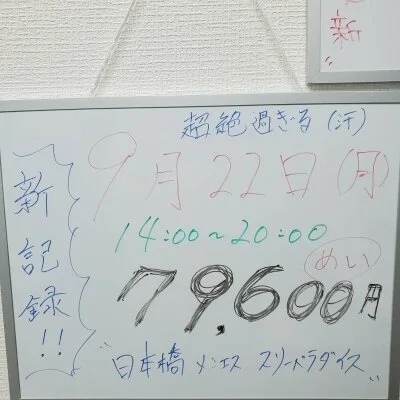 新
"
超絶過ぎる(汗)
9月22日(月)
新記録!!
14:00~20:00
めい
79,600円
"日本橋 メンエス スリーパラダイス"